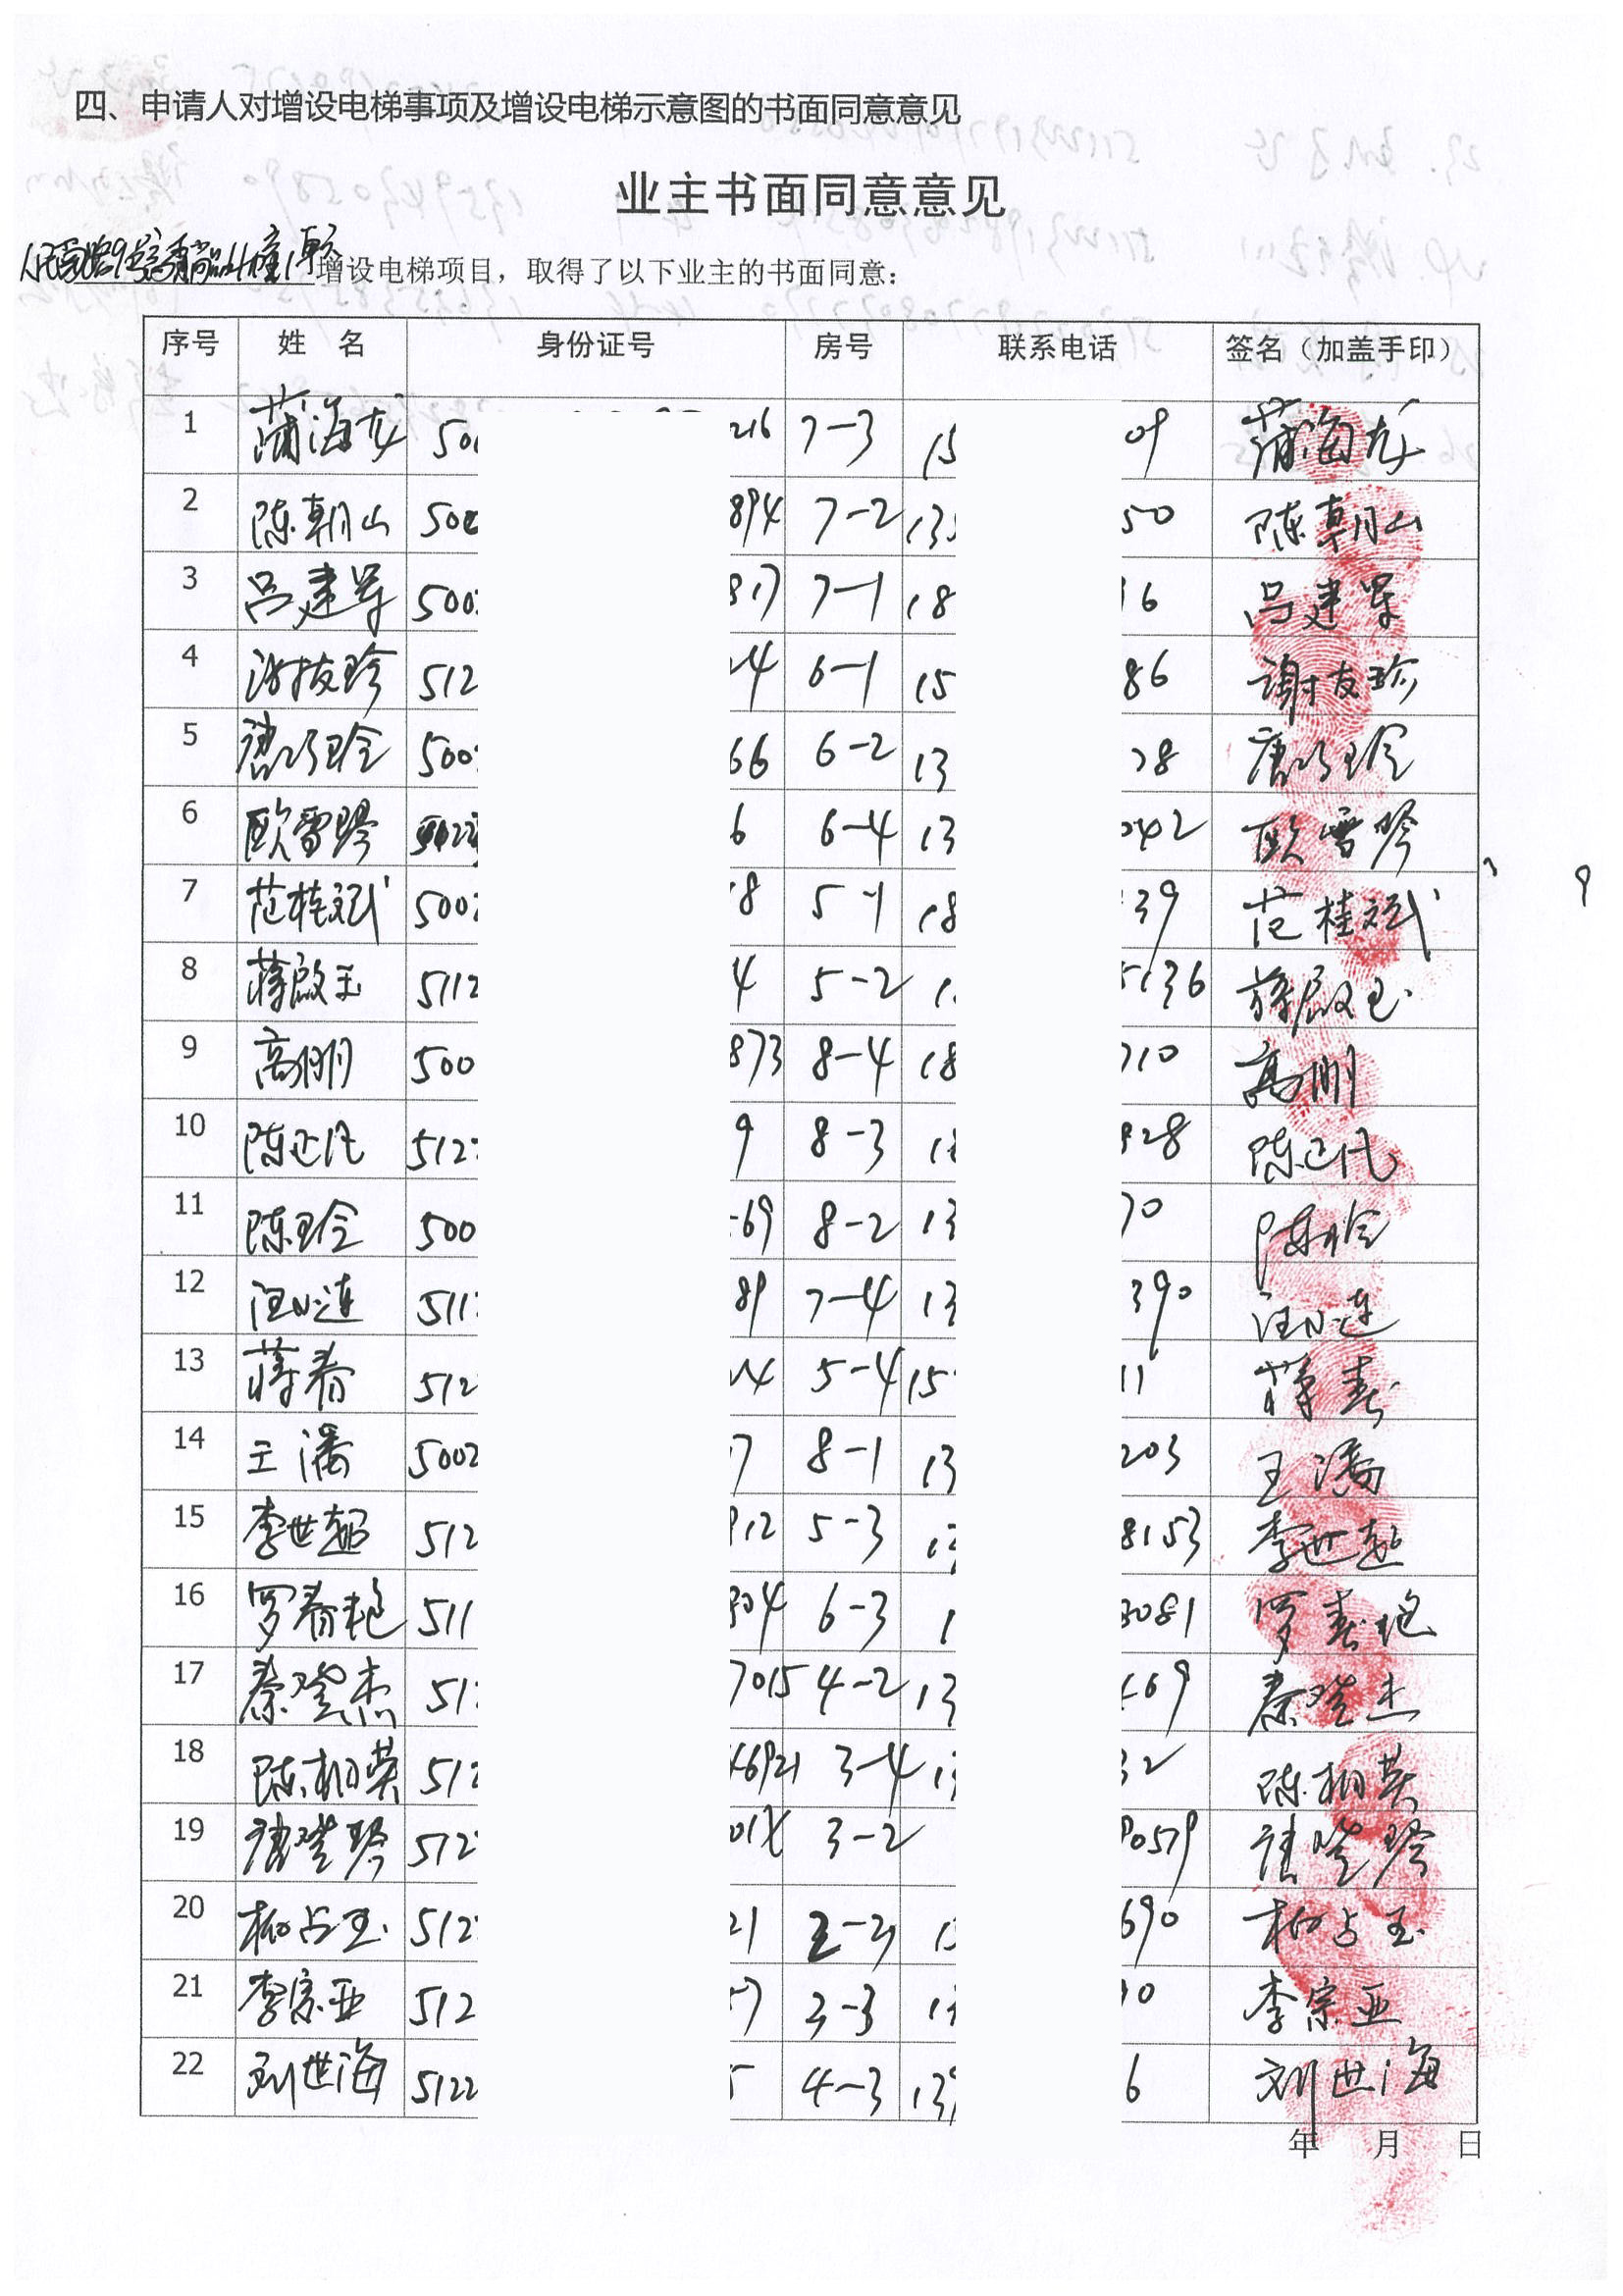 四、申请人对增设电梯事项及增设电梯示意图的书面同意意见
业主书面同意意见
增设电梯项目，取得了以下业主的书面同意：
序号 姓 名 身份证号 房号 联系电话 签名（加盖手印）
1 蒲海龙 50 216 7-3 15 09 蒲海龙
2 陈朝山 500 894 7-2 13 50 陈朝山
3 吕建军 500 817 7-1 18 16 吕建军
4 谢友珍 512 24 6-1 15 86 谢友珍
5 唐巧玲 500 66 6-2 13 28 唐巧玲
6 欧雪琴 6 6-4 13 242 欧雪琴
7 范桂斌 500 8 5-1 18 39 范桂斌
8 蒋啟玉 5112 4 5-2 1 5136 蒋啟玉
9 高刚 500 873 8-4 18 710 高刚
10 陈正代 512 9 8-3 18 928 陈正代
11 陈玲 500 69 8-2 13 70 陈玲
12 汪小连 511 89 7-4 13 390 汪小连
13 蒋春 512 24 5-4 15 11 蒋春
14 王潘 5002 7 8-1 13 203 王潘
15 李世超 512 912 5-3 13 8153 李世超
16 罗春艳 511 304 6-3 1 3081 罗春艳
17 秦登杰 51 7015 4-2 13 469 秦登杰
18 陈柳英 512 6921 3-4 13 32 陈柳英
19 唐登琴 512 01X 3-2 90579 唐登琴
20 柳占玉 512 21 2-2 13 690 柳占玉
21 李宗亚 512 7 3-3 13 10 李宗亚
22 刘世海 5122 5 4-3 139 6 刘世海
年 月 日